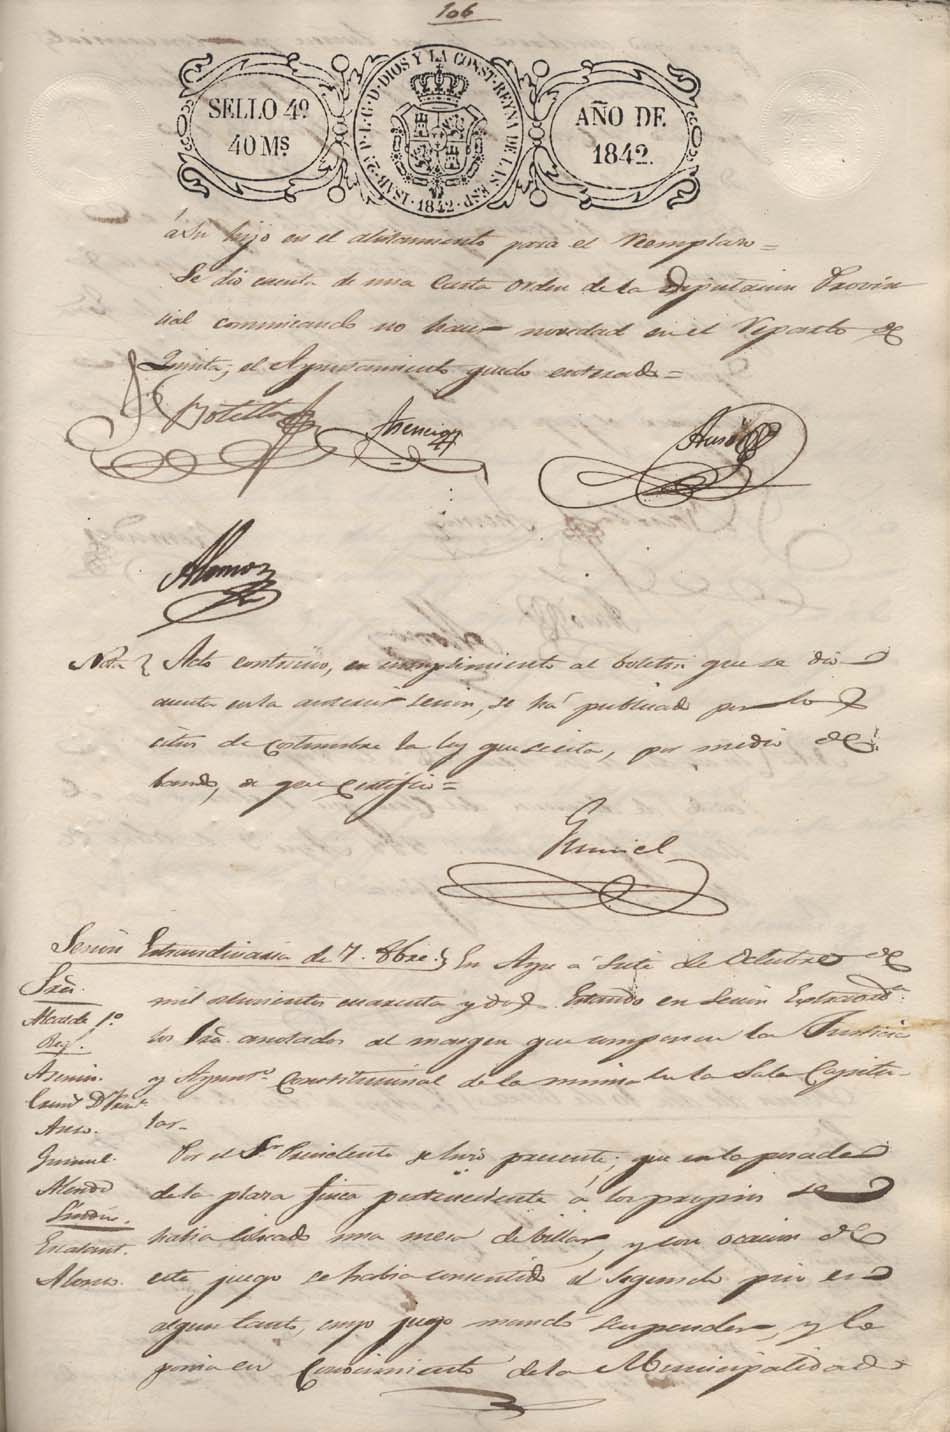 106
SELLO 4º
40 Ms
ISAB. 2ª P. L. G. D. DIOS Y LA CONST. REYNA DE LAS ESP. 1842
AÑO DE
1842.
á su hijo en el alistamiento para el reemplazo =
Se dio cuenta de una Carta orden de la Diputacion Provin
cial comunicando no haver novedad en el reparto de
Quinta, el Ayuntamiento quedo enterado =
Botella
Asencio
Auso
Alonso
Nota } Acto continuo, en cumplimiento al boletin que se dio
cuenta en la anterior sesion, se há publicado por los
sitios de costumbre la ley que se cita, por medio de
bando, de que certifico =
Gumiel
Sesion Extraordinaria de 7. 8bre. } En Aspe á siete de Octubre de
Sres.
mil ochocientos cuarenta y dos Estando en Sesion Extraordª.
Alcalde 1º
los Sres. anotados al margen que componen la Justicia
Reg.
y Ayuntº. Constitucional de la misma en la Sala Capitu-
Asencio.
lar-
Auso.
Por el Sr. Presidente se hizo presente; que en la posada
Gumiel.
de la plaza finca perteneciente á los propios se
Síndico.
habia colocado una mesa de villar, y con ocasion de
Alonso.
este juego se habia consentido el segundo piso en
algun tanto, cuyo juego mandó suspender, y lo
ponia en Conocimiento de la Municipalidad